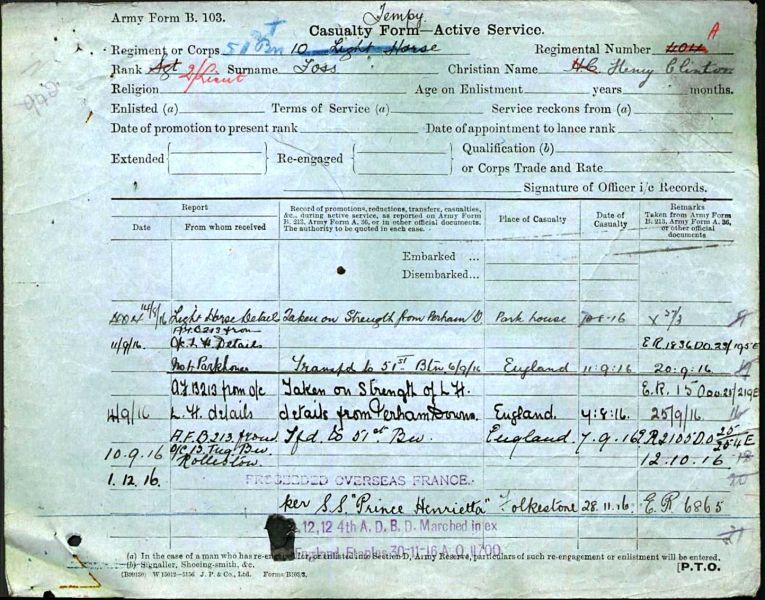 Army Form B. 103.
Tempy
Casualty Form—Active Service.
Regiment or Corps 51 Bn 10 Light Horse Regimental Number 404 A
Rank Sgt 2/Lieut Surname Foss Christian Name H.C. Henry Clinton
Religion Age on Enlistment years months.
Enlisted (a) Terms of Service (a) Service reckons from (a)
Date of promotion to present rank Date of appointment to lance rank
Extended Re-engaged Qualification (b)
or Corps Trade and Rate
Signature of Officer i/c Records.
Report
Date From whom received
Record of promotions, reductions, transfers, casualties, &c., during active service, as reported on Army Form B. 213, Army Form A. 36, or in other official documents. The authority to be quoted in each case.
Place of Casualty
Date of Casualty
Remarks
Taken from Army Form B. 213, Army Form A. 36, or other official documents
Embarked ...
Disembarked ...
14/8/16 Light Horse Detail Taken on Strength from Perham D. Park house
A.F.B213 from
11/9/16 O/c L. H. Details E.R. 1836
No 1 Parkhouse Transfd to 51st Btn 6/9/16 England 11.9.16 20.9.16
A.F.B213 from O/c Taken on Strength of L.H. E.R. 150
14/9/16 L.H. details details from Perham Downs. England. 4.8.16. 25/9/16
A.F.B213. from Tfd. to 51st Bn. England 7.9.16 E.R.2105 D.O
10.9.16 O/C 13. Trg. Bn 12.10.16
Rolleston.
1.12.16. PROCEEDED OVERSEAS FRANCE.
per S.S. "Prince Henrietta" Folkestone 28.11.16. E.R 6865
2,12,12 4th A.D.B.D. Marched in ex
England Etaples 30-11-16 A.O.
(a) In the case of a man who has re-engaged for, or enlisted into Section D, Army Reserve, particulars of such re-engagement or enlistment will be entered.
(b) Signaller, Shoeing-smith, &c.
J. P. & Co., Ltd. Forms B103/2. [P.T.O.